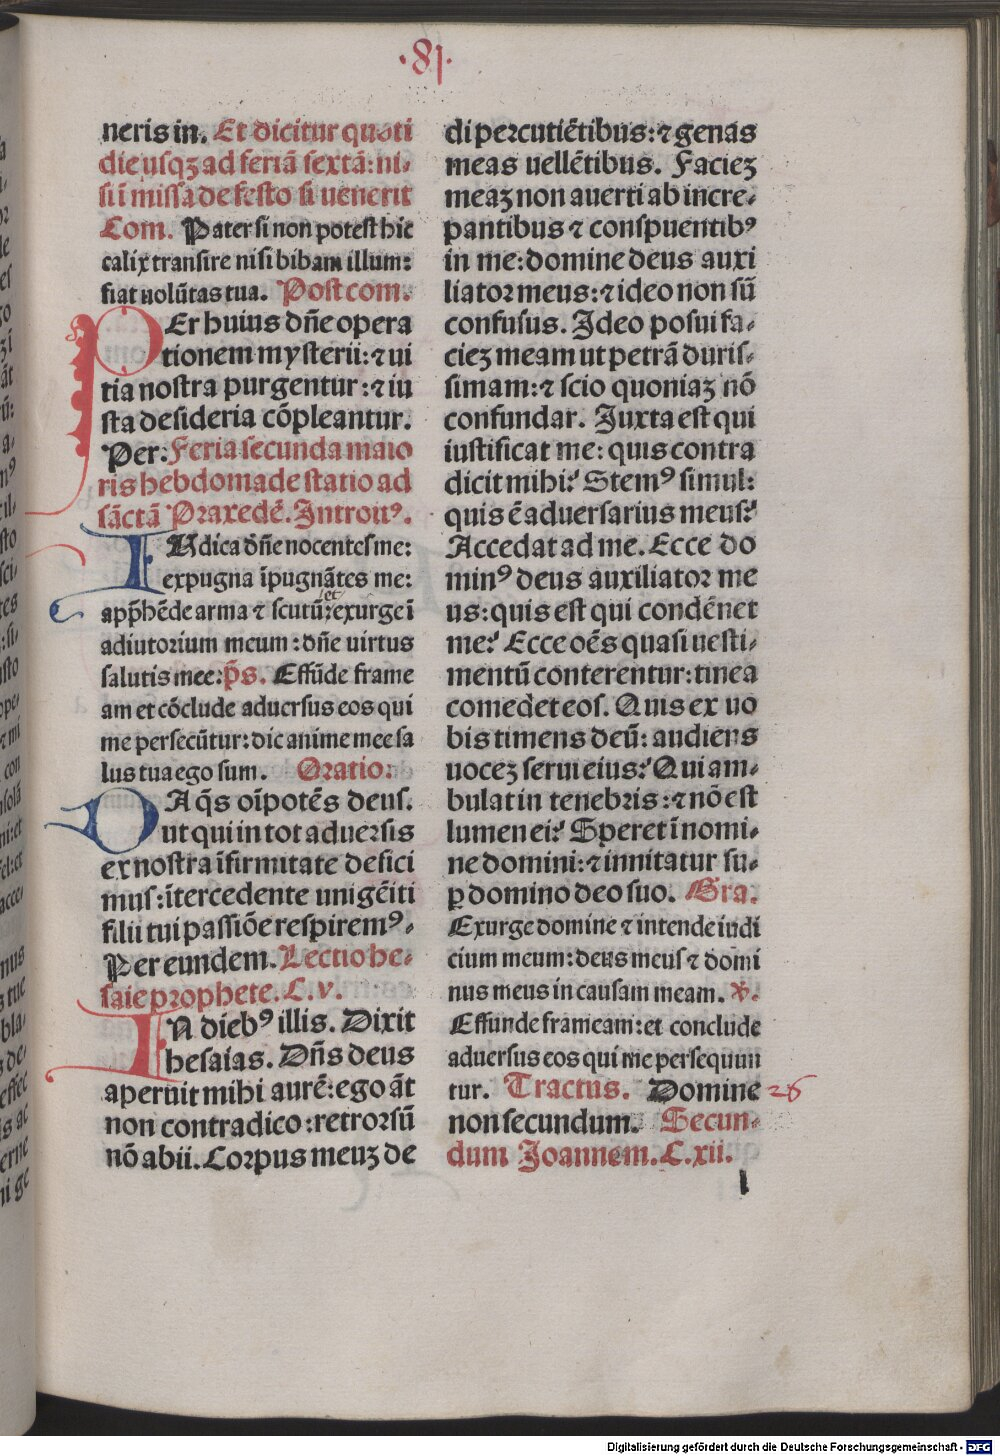 ·81·
neris in. Et dicitur quoti
die usqꝫ ad feriā sextā: ni⸗
si ī missa de festo si uenerit
Com. Pater si non potest hic
calix transire nisi bibam illum:
fiat uolūtas tua. Postcom.
PEr huius dn̄e opera
tionem mysterii: ⁊ ui
tia nostra purgentur: ⁊ iu
sta desideria cōpleantur.
Per: Feria secunda maio
ris hebdomade statio ad
sāctā Praxedē. Introitꝰ.
IUdica dn̄e nocentes me:
expugna īpugnātes me:
app̄hēde arma ⁊ scutū: et exurge ī
adiutorium meum: dn̄e uirtus
salutis mee: p̄s. Effūde frame
am et cōclude aduersus eos qui
me persecūtur: dic anime mee sa
lus tua ego sum. Oratio:
DA q̄s oīpotēs deus.
ut qui in tot aduersis
ex nostra īfirmitate defici
mus: ītercedente unigēiti
filii tui passiōe respiremꝰ.
Per eundem. Lectio he⸗
saie prophete. C. v.
IN diebꝰ illis. Dixit
hesaias. Dn̄s deus
aperuit mihi aurē: ego āt
non contradico: retrorsū
nō abii. Corpus meuꝫ de
di percutiētibus: ⁊ genas
meas uellētibus. Facieꝫ
meaꝫ non auerti ab incre⸗
pantibus ⁊ conspuentibꝰ
in me: domine deus auxi
liator meus: ⁊ ideo non sū
confusus. Ideo posui fa⸗
cieꝫ meam ut petrā duris⸗
simam: ⁊ scio quoniaꝫ nō
confundar. Juxta est qui
iustificat me: quis contra
dicit mihi? Stemꝰ simul:
quis ē aduersarius meus?
Accedat ad me. Ecce do
minꝰ deus auxiliator me
us: quis est qui condēnet
me? Ecce oēs quasi uesti⸗
mentū conterentur: tinea
comedet eos. Quis ex uo
bis timens deū: audiens
uoceꝫ serui eius? Qui am⸗
bulat in tenebris: ⁊ nō est
lumen ei? Speret ī nomi⸗
ne domini: ⁊ innitatur su⸗
ꝑ domino deo suo. Gra.
Exurge domine ⁊ intende iudi
cium meum: deus meus ⁊ domi
nus meus in causam meam. ℣.
Effunde frameam: et conclude
aduersus eos qui me persequun
tur. Tractus. Domine 26
non secundum. Secun⸗
dum Joannem. C. xii.
l
Digitalisierung gefördert durch die Deutsche Forschungsgemeinschaft - DFG